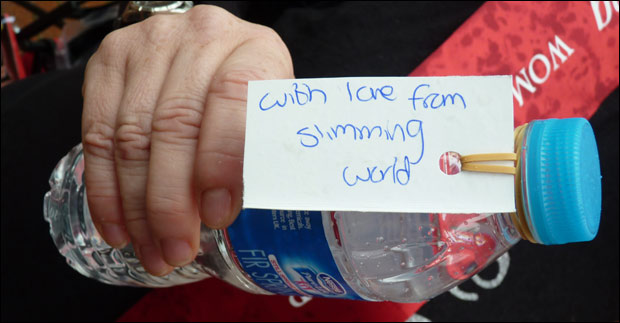 with love from
slimming
world
WOM
FIR SP